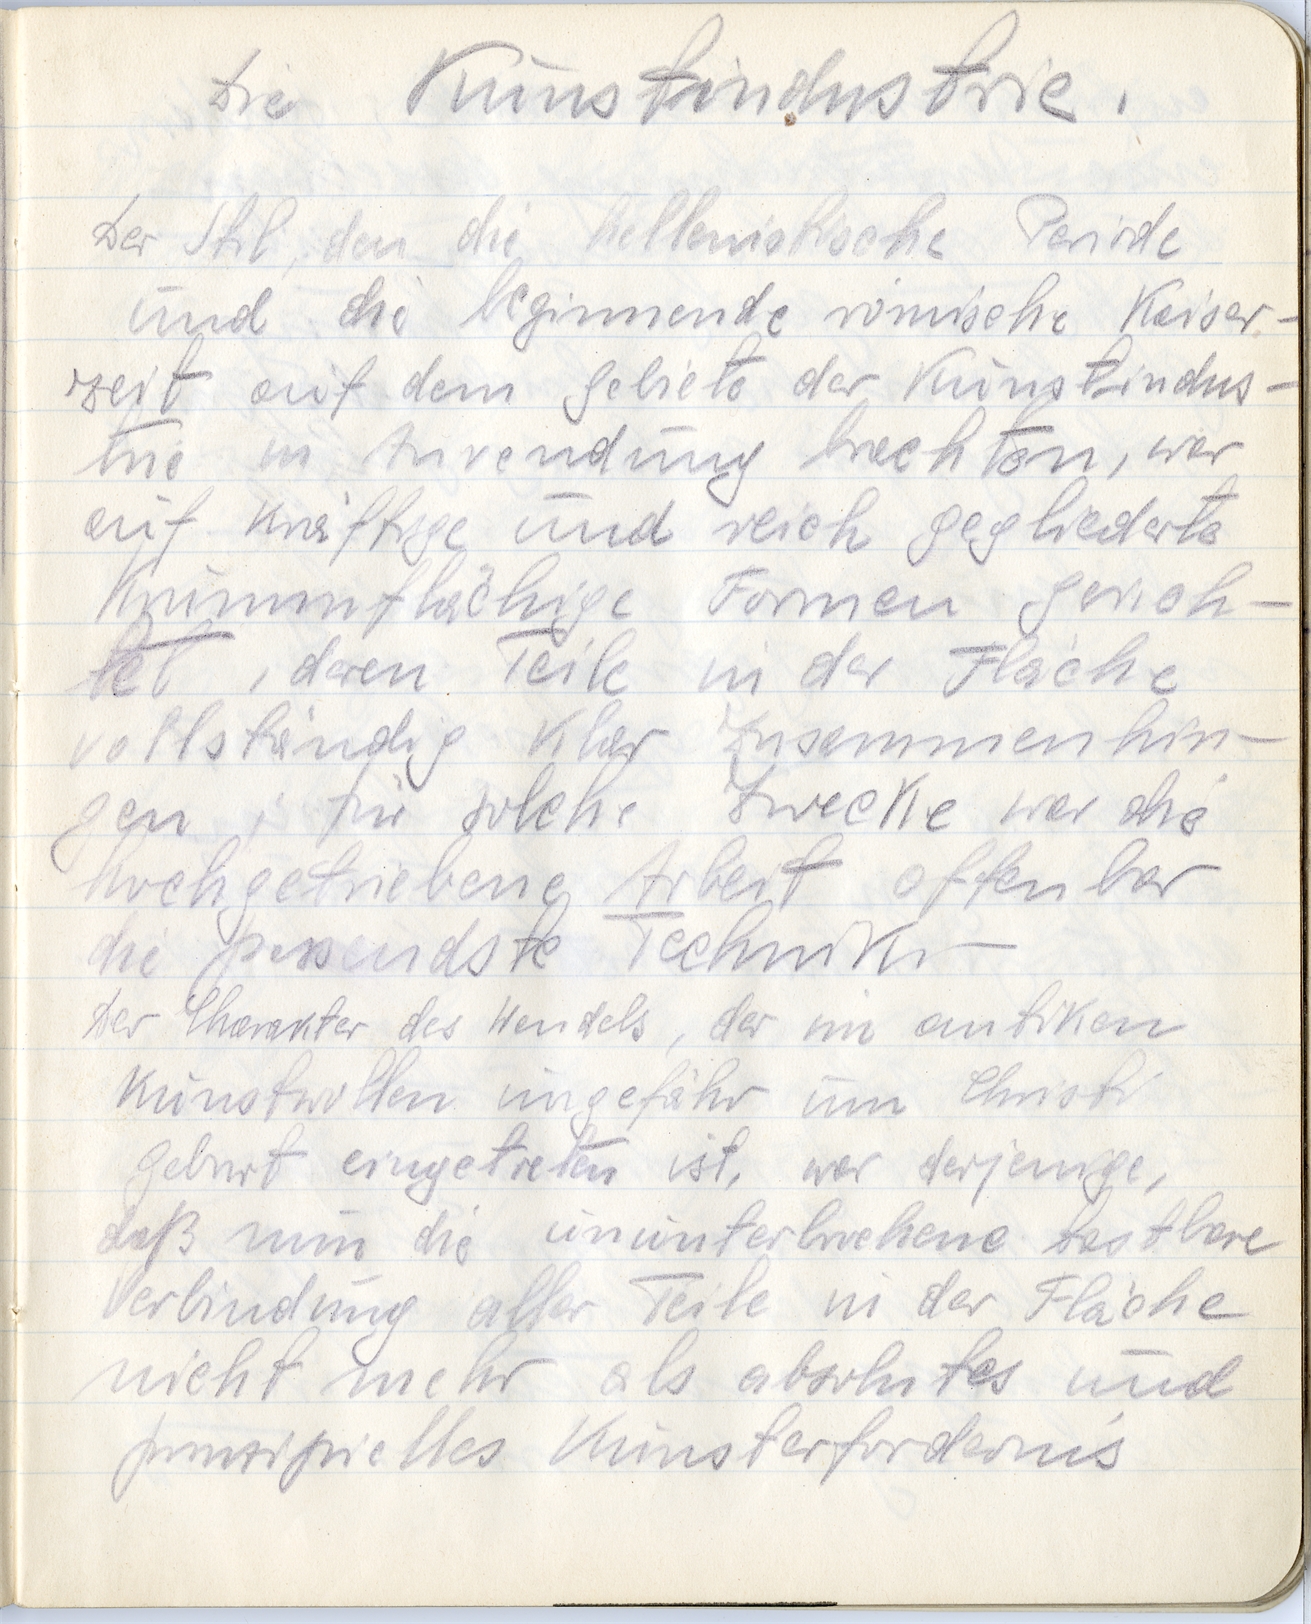 Die Kunstindustrie.
Der Stil, den die hellenistische Periode
und die beginnende römische Kaiser-
zeit auf dem Gebiete der Kunstindus-
trie in Anwendung brachten, war
auf kräftige und reich gegliederte
krummflächige Formen gerich-
tet, deren Teile in der Fläche
vollständig klar zusammenhin-
gen; für solche Zwecke war die
hochgetriebene Arbeit offenbar
die passendste Technik. –
Der Charakter des Wandels, der im antiken
Kunstwollen ungefähr um Christi
Geburt eingetreten ist, war derjenige,
daß nun die ununterbrochene tastbare
Verbindung aller Teile in der Fläche
nicht mehr als absolutes und
prinzipielles Kunsterfordernis